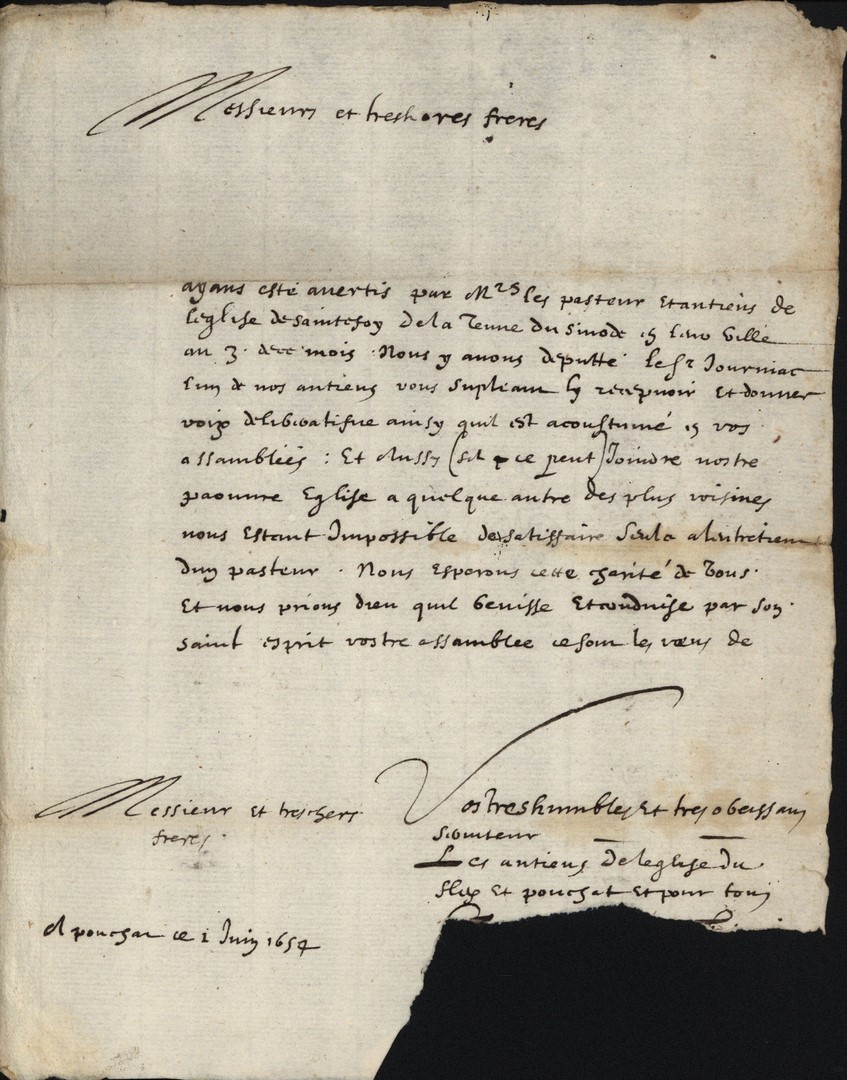 Messieurs et treshores freres
ayans esté avertis par Mrs les pasteur et antiens de
leglise de saintefoy de la Tenue du sinode en leur ville
au 3. de ce mois. Nous y avons deputté le sr Journiac
lun de nos antiens vous supliant ly recepuoir et donner
voix deliberatifue ainsy quil est acoustumé en vos
assamblées : Et Aussy (sil ce peut) Joindre nostre
paouure Eglise a quelque autre des plus voisines
nous Estant Impossible de satisfaire seule a lentretien
dun pasteur. Nous Esperons cette charité de Vous.
Et nous prions dieu quil benisse Et conduise par son.
saint esprit vostre assamblee ce sont les vœus de
Messieur et treschers
freres.
Vos treshumbles Et tres obeissans
seruiteur
Les antiens De leglise du
fleix Et ponchat Et pour tous
A ponchat ce 1 Juin 1654